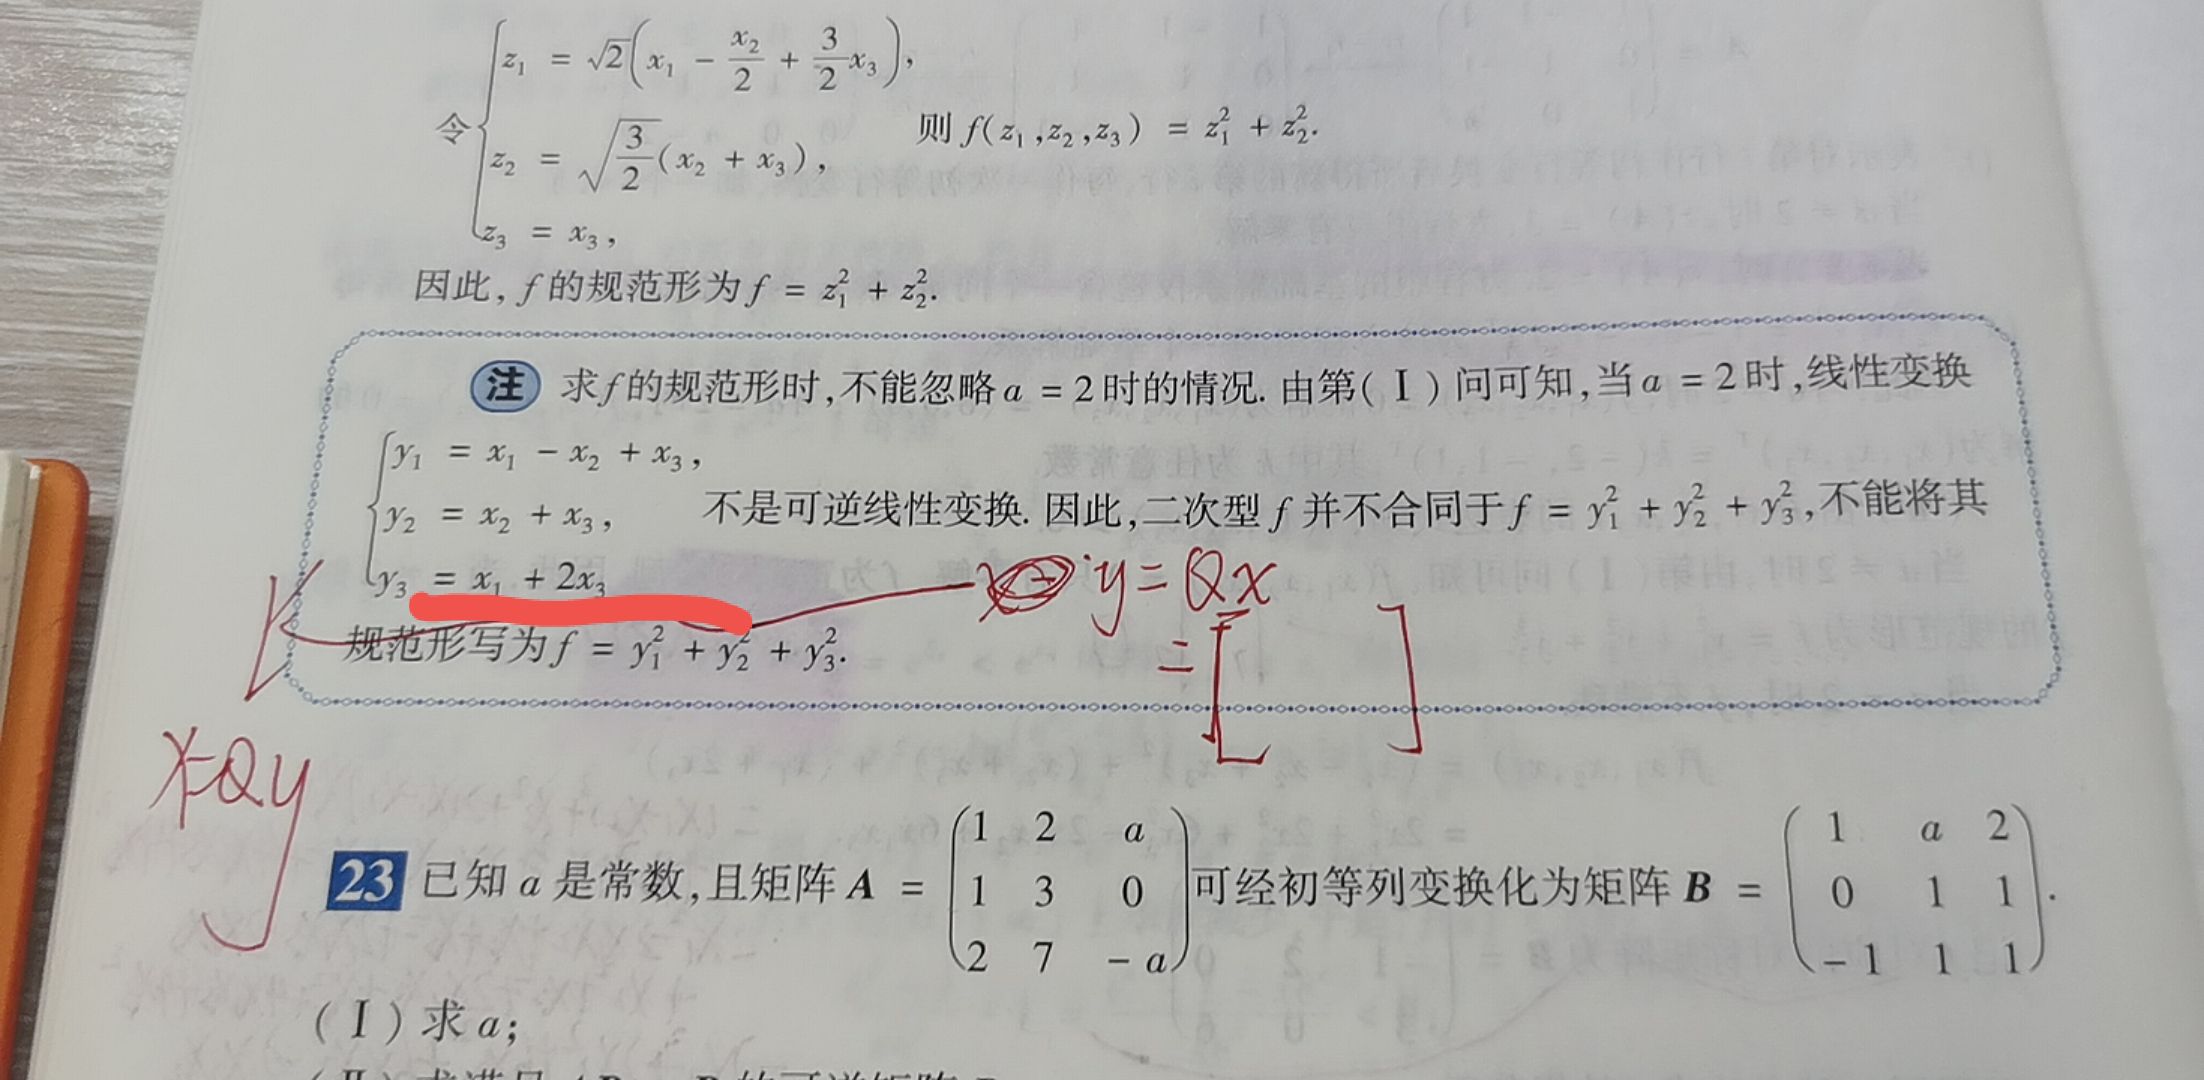 令 { z₁ = √2(x₁ − x₂/2 + 3/2 x₃),
z₂ = √(3/2)(x₂ + x₃), 则 f(z₁,z₂,z₃) = z₁² + z₂².
z₃ = x₃,
因此, f的规范形为f = z₁² + z₂².
注 求f的规范形时,不能忽略a = 2时的情况. 由第(Ⅰ)问可知,当a = 2时,线性变换
{ y₁ = x₁ − x₂ + x₃,
y₂ = x₂ + x₃, 不是可逆线性变换. 因此,二次型f并不合同于f = y₁² + y₂² + y₃²,不能将其
y₃ = x₁ + 2x₃
y = Qx
= [ ]
规范形写为f = y₁² + y₂² + y₃².
x=Qy
23 已知a是常数,且矩阵A = (1 2 a; 1 3 0; 2 7 −a) 可经初等列变换化为矩阵B = (1 a 2; 0 1 1; −1 1 1).
(Ⅰ)求a;